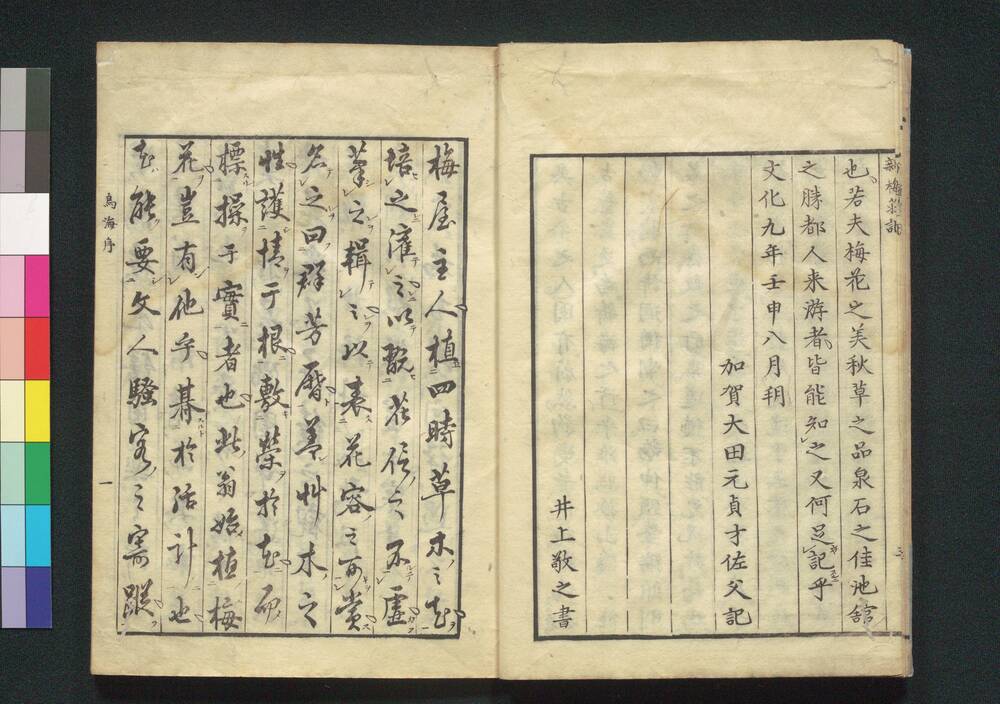 也若夫梅花之美秋草之品泉石之佳池舘
之勝都人来游者皆能知之又何足記乎
文化九年壬申八月朔
加賀大田元貞才佐父記
井上敬之書
梅屋主人植四時草木之花
培之灌之以
筆之輯之以表花容之可賞
名之曰群芳暦蓋艸木之
性護情于根敷榮於花而
標操于實者也此翁始植梅
花豈有他乎碁於活計也
花能要文人騷客之寄蹤
鳥海序
一